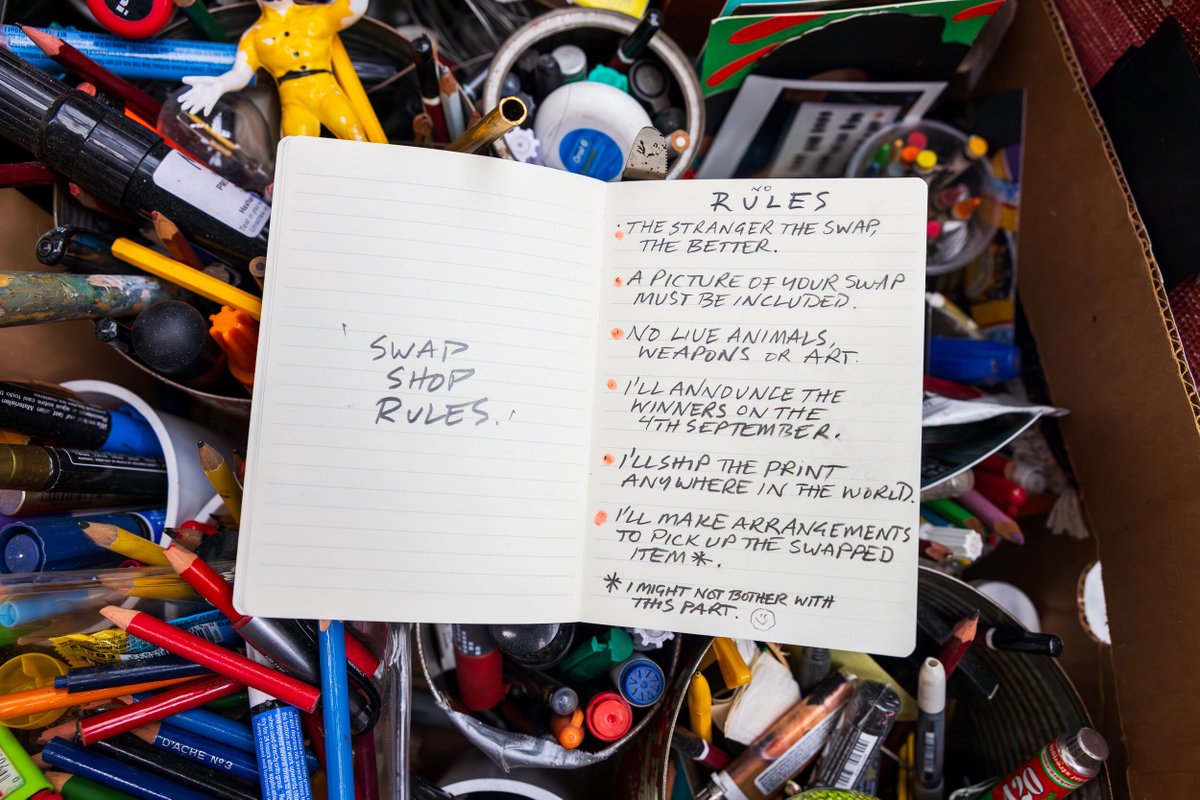 SWAP
SHOP
RULES.!
NO
RULES
THE STRANGER THE SWAP,
THE BETTER.
A PICTURE OF YOUR SWAP
MUST BE INCLUDED.
NO LIVE ANIMALS,
WEAPONS OR ART.
I'LL ANNOUNCE THE
WINNERS ON THE
4TH SEPTEMBER.
I'LL SHIP THE PRINT
ANYWHERE IN THE WORLD.
I'LL MAKE ARRANGEMENTS
TO PICK UP THE SWAPPED
ITEM*.
* I MIGHT NOT BOTHER WITH
THIS PART.
Oral B
D'ACHE Nº3
420